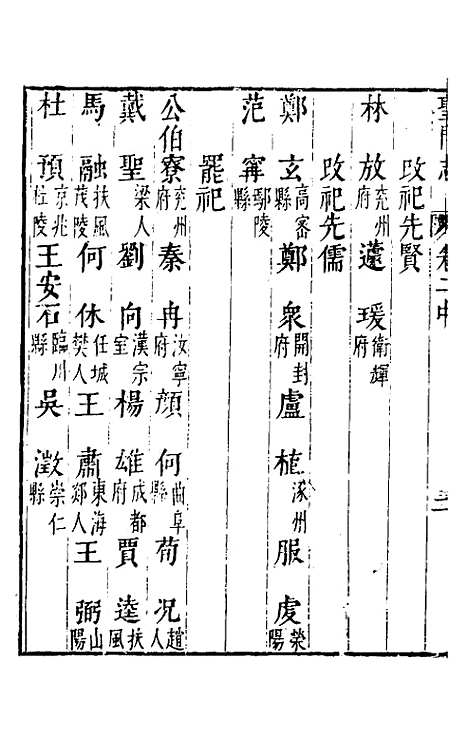 聖門志 卷二中
攺祀先賢
林放兖州府蘧瑗衛輝府
攺祀先儒
鄭玄高密縣鄭衆開封府盧植涿州服虔滎陽
范甯鄢陵縣
罷祀
公伯寮兖州府秦冉汝寧府顔何曲阜縣荀况趙人
戴聖梁人劉向漢宗室楊雄成都府賈逵扶風
馬融扶風茂陵何休任城樊人王肅東海郯人王弼山陽
杜預京兆杜陵王安石臨川縣吳澂崇仁縣